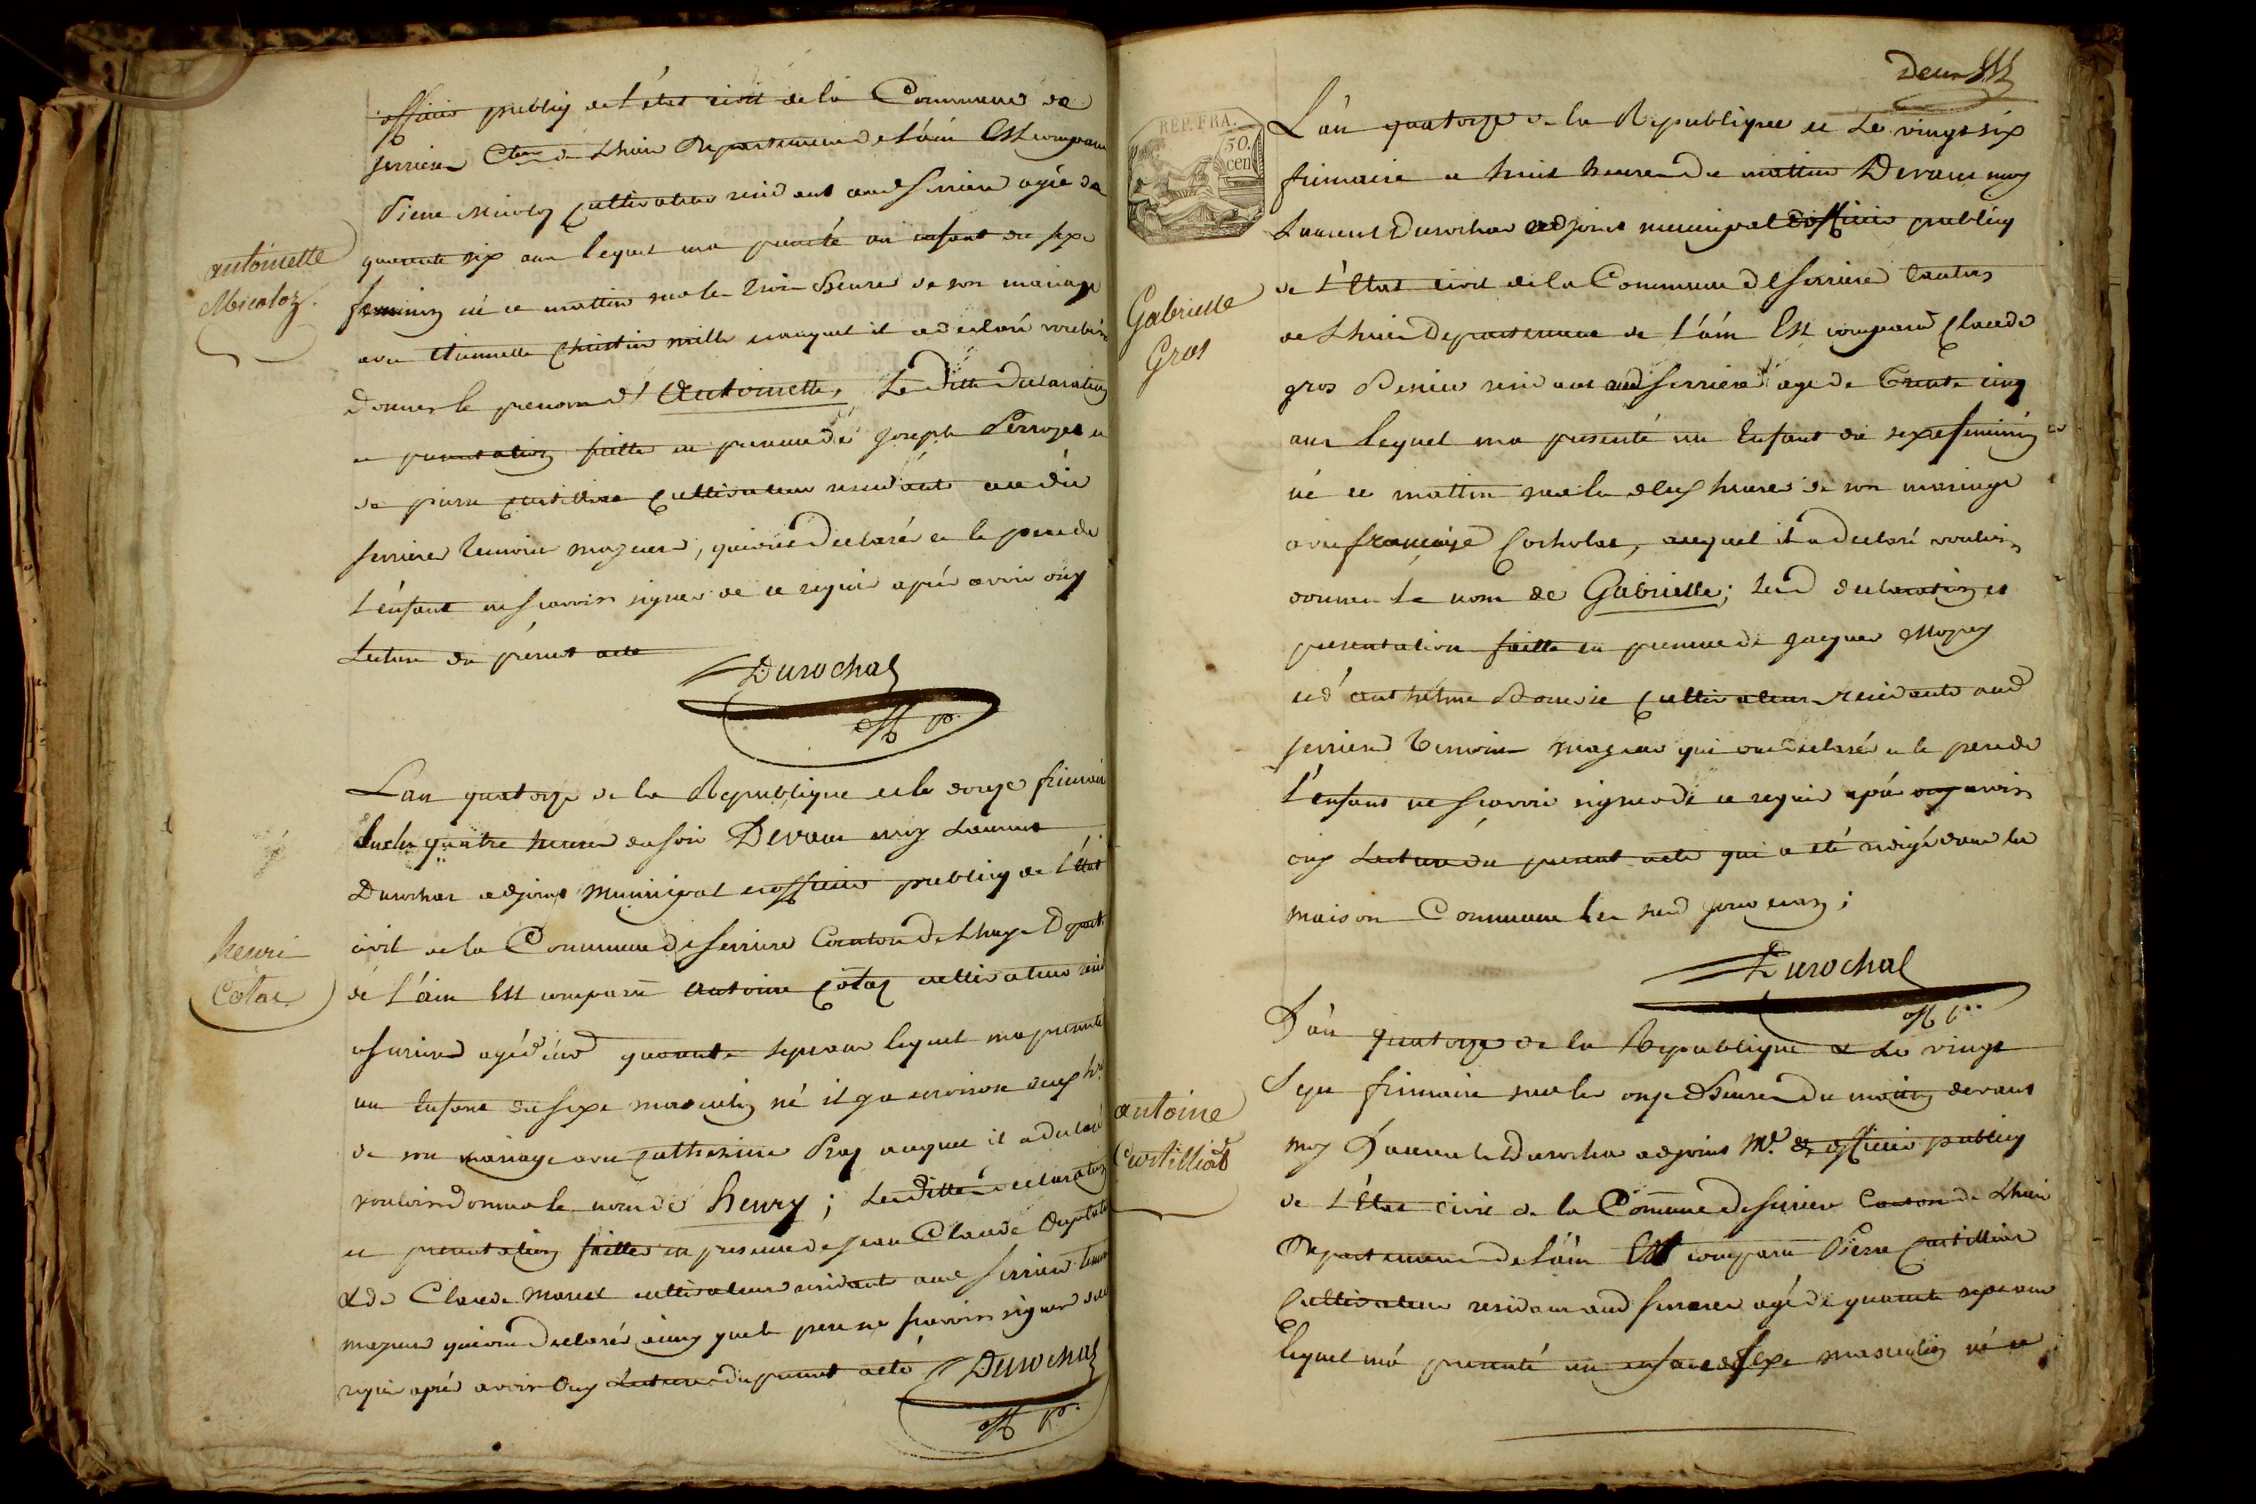 officier public de l'état civil de la Commune de
serriere Cton de Lhuis Departement de l'ain Est comparu
Pierre Micoloz Cultivateur résidant aud serriere agée de
quarante six ans lequel ma presenté un enfant du sexe
feminin né ce mattin sur les trois heures de son mariage
avec Etiennette auquel il a declaré vouloir
donner le prenom d'Antoinette, Le ditte declaration
et presentation faitte en presence de joseph Perrozet et
de pierre Curtilliat Cultivateur residants au dit
serriere temoins majeurs, qui ont declaré et le pere de
l'enfant ne scavoir signer de ce requis aprés avoir ouy
Lecture du présent acte
Durochat
off. p.
antoinette
Micoloz.
Lan quatorze de la Republique et le douze frimaire
sur les quatre heures du soir Devant moy Laurent
Durochat adjoint Municipal et officier public de l'état
civil de la Commune de serriere Canton de Lhuys Depart.
de l'ain Est comparu antoine Cotaz cultivateur resid
a serriere agé de quarante sept ans lequel ma presenté
un Enfant du sexe masculin né il y a environ deux hres
de son mariage avec Catherine Pray auquel il a declaré
vouloir donner le nom de henry; Leditte declaration
et presentation faittes en presence de jean Claude
et de Claude Maret cultivateurs residants aud serriere temoins
majeurs qui ont declaré ainsy que le pere ne scavoir signer de ce
requis aprés avoir ouy Lecture du present acte
Durochat
off. p.
henri
Cotaz
Deux
REP. FRA.
50.
cen
L'an quatorze de la Republique et Le vingt six
frimaire a huit heures du mattin Devant moy
Laurent Durochat adjoint municipal officier public
de l'Etat civil de la Commune de serriere Canton
de Lhuis Departement de l'ain Est comparu Claude
gros résidant aud serriere agé de trente cinq
ans Lequel ma presenté un Enfant du sexe feminin
né ce mattin sur les deux heures de son mariage
avec françoise Cocholat, auquel il a declaré vouloir
donner Le nom de Gabrielle; Led declaration et
presentation faitte en presence de jacques
et d'anthelme Cultivateurs residants aud
serriere temoins majeurs qui ont declaré et le pere de
l'enfant ne scavoir signer de ce requis aprés avoir
ouy Lecture du present acte qui a été redigé dans la
maison Commune Les sud jour et an;
Durochat
off. p.
Gabrielle
Gros
L'an quatorze de la Republique et Le vingt
sept frimaire sur les onze heures du matin devant
moy Laurent Durochat adjoint Mal. et officier public
de l'Etat civil de la Commune de serriere Canton de Lhuis
Departement de l'ain Est comparu Pierre Curtilliat
Cultivateur residant aud serriere agé de quarante sept ans
lequel m'a presenté un enfant de sexe masculin né ce
antoine
Curtilliat